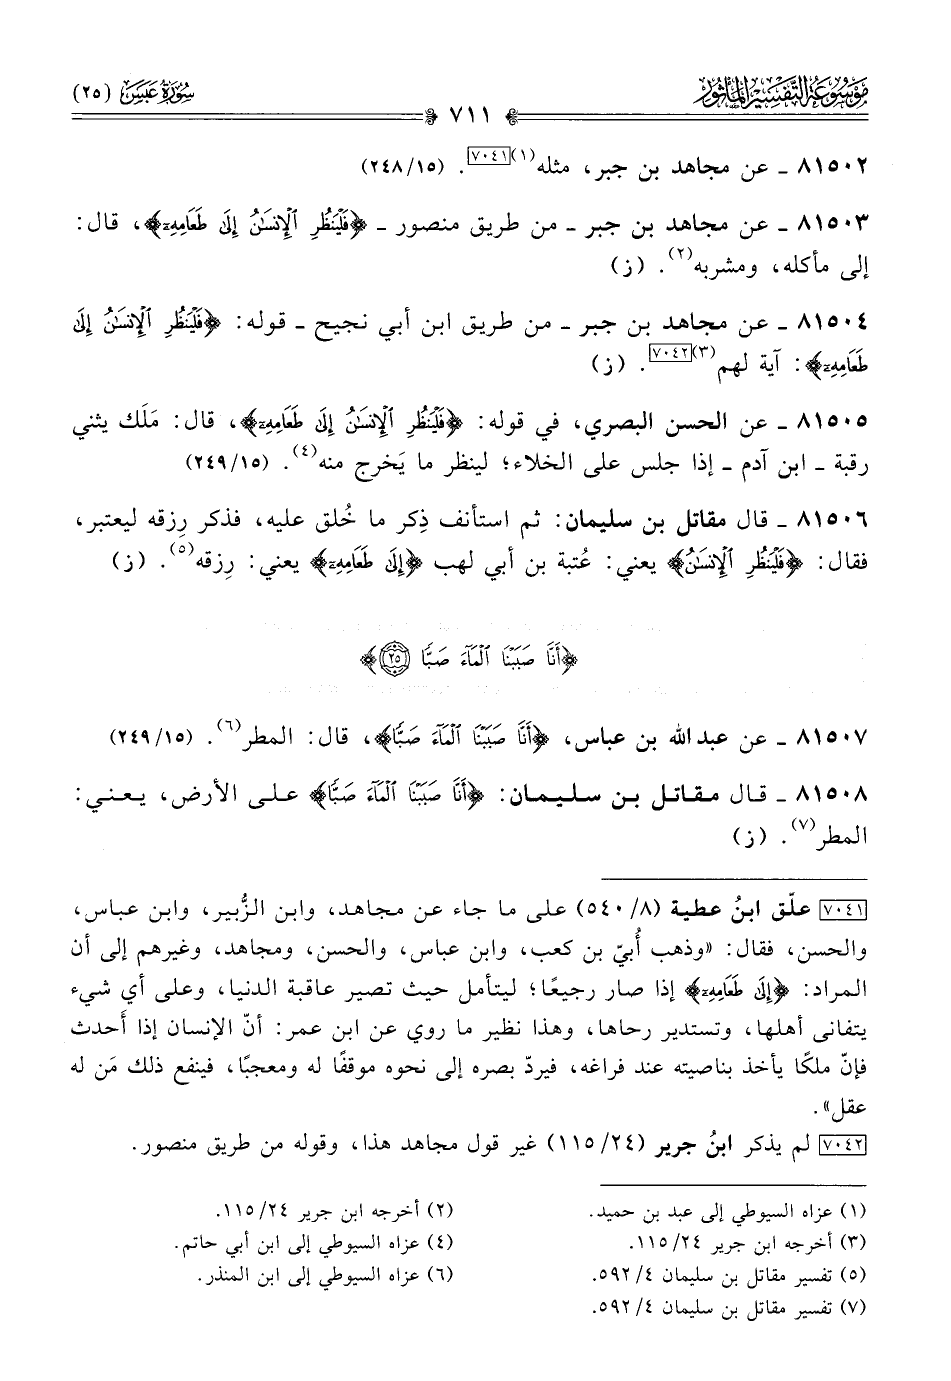 مَوْسُوعَةُ التَّفْسِيرِ المَأْثُورِ
سُورَةُ عَبَسَ (٢٥)
٧١١
٨١٥٠٢ ـ عن مجاهد بن جبر، مثله(١)[٧٠٤١]. (١٥/٢٤٨)
٨١٥٠٣ ـ عن مجاهد بن جبر ـ من طريق منصور ـ ﴿فَلْيَنظُرِ ٱلْإِنسَٰنُ إِلَىٰ طَعَامِهِۦٓ﴾، قال:
إلى مأكله، ومشربه(٢). (ز)
٨١٥٠٤ ـ عن مجاهد بن جبر ـ من طريق ابن أبي نجيح ـ قوله: ﴿فَلْيَنظُرِ ٱلْإِنسَٰنُ إِلَىٰ
طَعَامِهِۦٓ﴾: آية لهم(٣)[٧٠٤٢]. (ز)
٨١٥٠٥ ـ عن الحسن البصري، في قوله: ﴿فَلْيَنظُرِ ٱلْإِنسَٰنُ إِلَىٰ طَعَامِهِۦٓ﴾، قال: مَلَك يثني
رقبة ـ ابن آدم ـ إذا جلس على الخلاء؛ لينظر ما يَخرج منه(٤). (١٥/٢٤٩)
٨١٥٠٦ ـ قال مقاتل بن سليمان: ثم استأنف ذِكر ما خُلق عليه، فذكر رِزقه ليعتبر،
فقال: ﴿فَلْيَنظُرِ ٱلْإِنسَٰنُ﴾ يعني: عُتبة بن أبي لهب ﴿إِلَىٰ طَعَامِهِۦٓ﴾ يعني: رِزقه(٥). (ز)
﴿أَنَّا صَبَبْنَا ٱلْمَآءَ صَبًّا ٢٥﴾
٨١٥٠٧ ـ عن عبد الله بن عباس، ﴿أَنَّا صَبَبْنَا ٱلْمَآءَ صَبًّا﴾، قال: المطر(٦). (١٥/٢٤٩)
٨١٥٠٨ ـ قال مقاتل بن سليمان: ﴿أَنَّا صَبَبْنَا ٱلْمَآءَ صَبًّا﴾ على الأرض، يعني:
المطر(٧). (ز)
[٧٠٤١] علّق ابنُ عطية (٨/٥٤٠) على ما جاء عن مجاهد، وابن الزُّبير، وابن عباس،
والحسن، فقال: «وذهب أُبيّ بن كعب، وابن عباس، والحسن، ومجاهد، وغيرهم إلى أن
المراد: ﴿إِلَىٰ طَعَامِهِۦٓ﴾ إذا صار رجيعًا؛ ليتأمل حيث تصير عاقبة الدنيا، وعلى أي شيء
يتفانى أهلها، وتستدير رحاها، وهذا نظير ما روي عن ابن عمر: أنّ الإنسان إذا أَحدث
فإنّ ملكًا يأخذ بناصيته عند فراغه، فيردّ بصره إلى نحوه موقفًا له ومعجبًا، فينفع ذلك مَن له
عقل».
[٧٠٤٢] لم يذكر ابنُ جرير (٢٤/١١٥) غير قول مجاهد هذا، وقوله من طريق منصور.
(١) عزاه السيوطي إلى عبد بن حميد.
(٢) أخرجه ابن جرير ٢٤/١١٥.
(٣) أخرجه ابن جرير ٢٤/١١٥.
(٤) عزاه السيوطي إلى ابن أبي حاتم.
(٥) تفسير مقاتل بن سليمان ٤/٥٩٢.
(٦) عزاه السيوطي إلى ابن المنذر.
(٧) تفسير مقاتل بن سليمان ٤/٥٩٢.